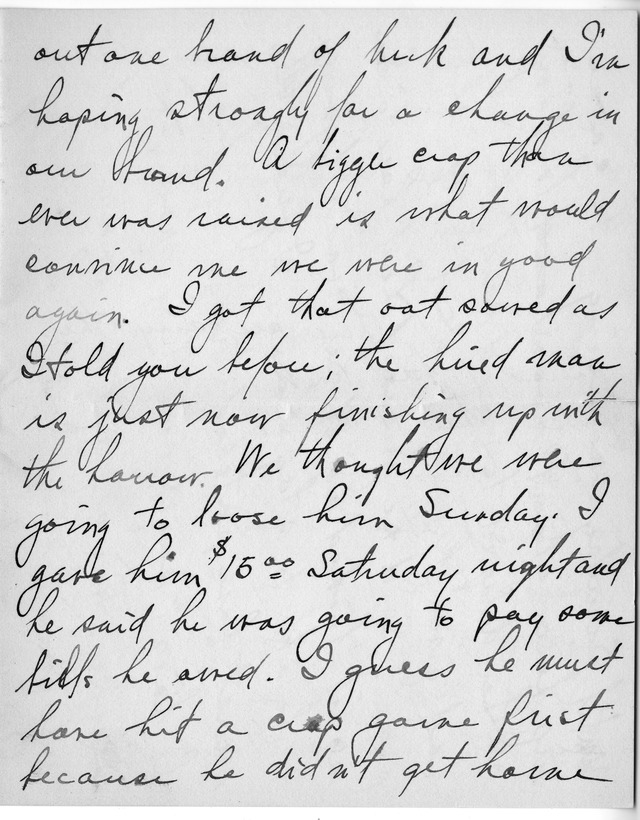 out one brand of luck and I'm
hoping strongly for a change in
our brand. A bigger crop than
ever was raised is what would
convince me we were in good
again. I got that oat sowed as
I told you before; the hired man
is just now finishing up with
the harrow. We thought we were
going to loose him Sunday. I
gave him $15.00 Saturday night and
he said he was going to pay some
bills he owed. I guess he must
have hit a crap game first
because he didn't get home